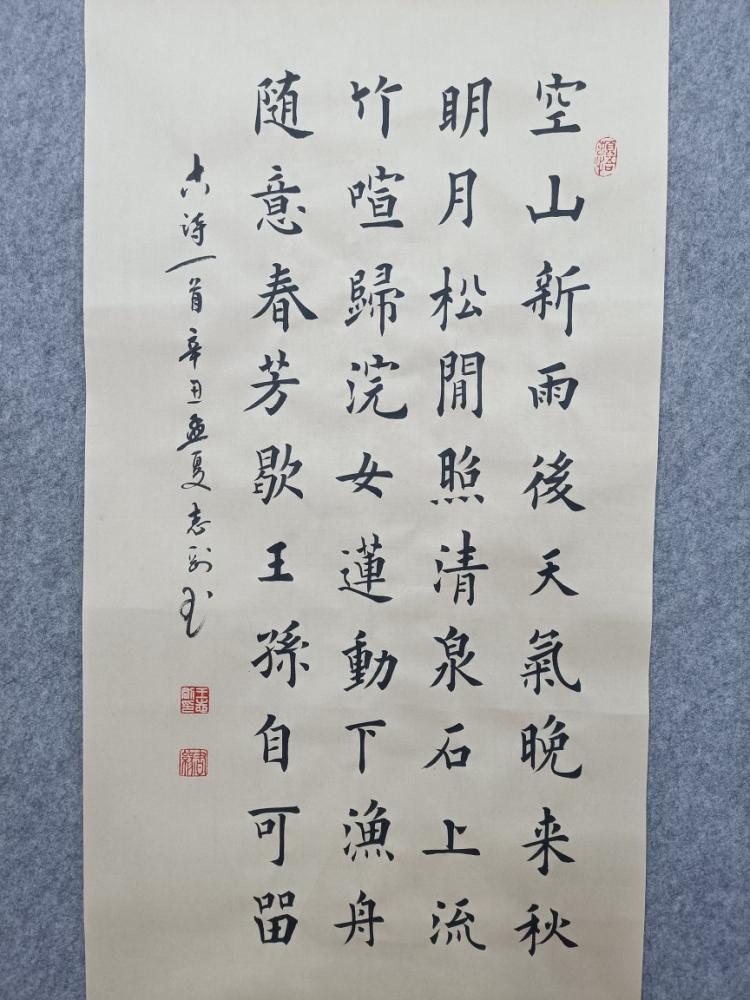 空山新雨後天氣晚来秋
明月松間照清泉石上流
竹喧歸浣女蓮動下漁舟
随意春芳歇王孫自可留
古诗一首辛丑孟夏志刚书